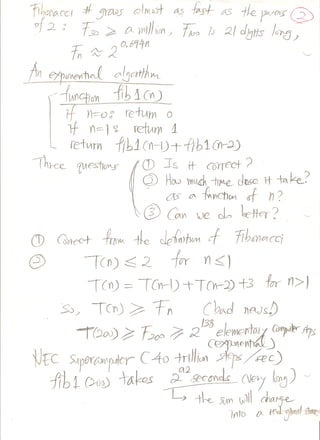 Fibonacci # grows almost as fast as the powers
②
of 2 : F₃₀ ≥ a million, F₁₀₀ is 21 digits long,
Fₙ ≈ 2^0.694n
An exponential algorithm
function fib1(n)
if n=0: return 0
if n=1: return 1
return fib1(n-1) + fib1(n-2)
Three questions
① Is it correct?
② How much time does it take?
as a function of n?
③ Can we do better?
① Correct from the definition of Fibonacci
② T(n) ≤ 2 for n≤1
T(n) = T(n-1) + T(n-2) +3 for n>1
So, T(n) ≥ Fₙ (bad news!)
T(200) ≥ F₂₀₀ ≥ 2^138 elementary computer steps
(exponential)
NEC supercomputer (40 trillion steps/sec)
fib1(200) takes 2^92 seconds (very long)
↳ the sun will change
into a red giant star